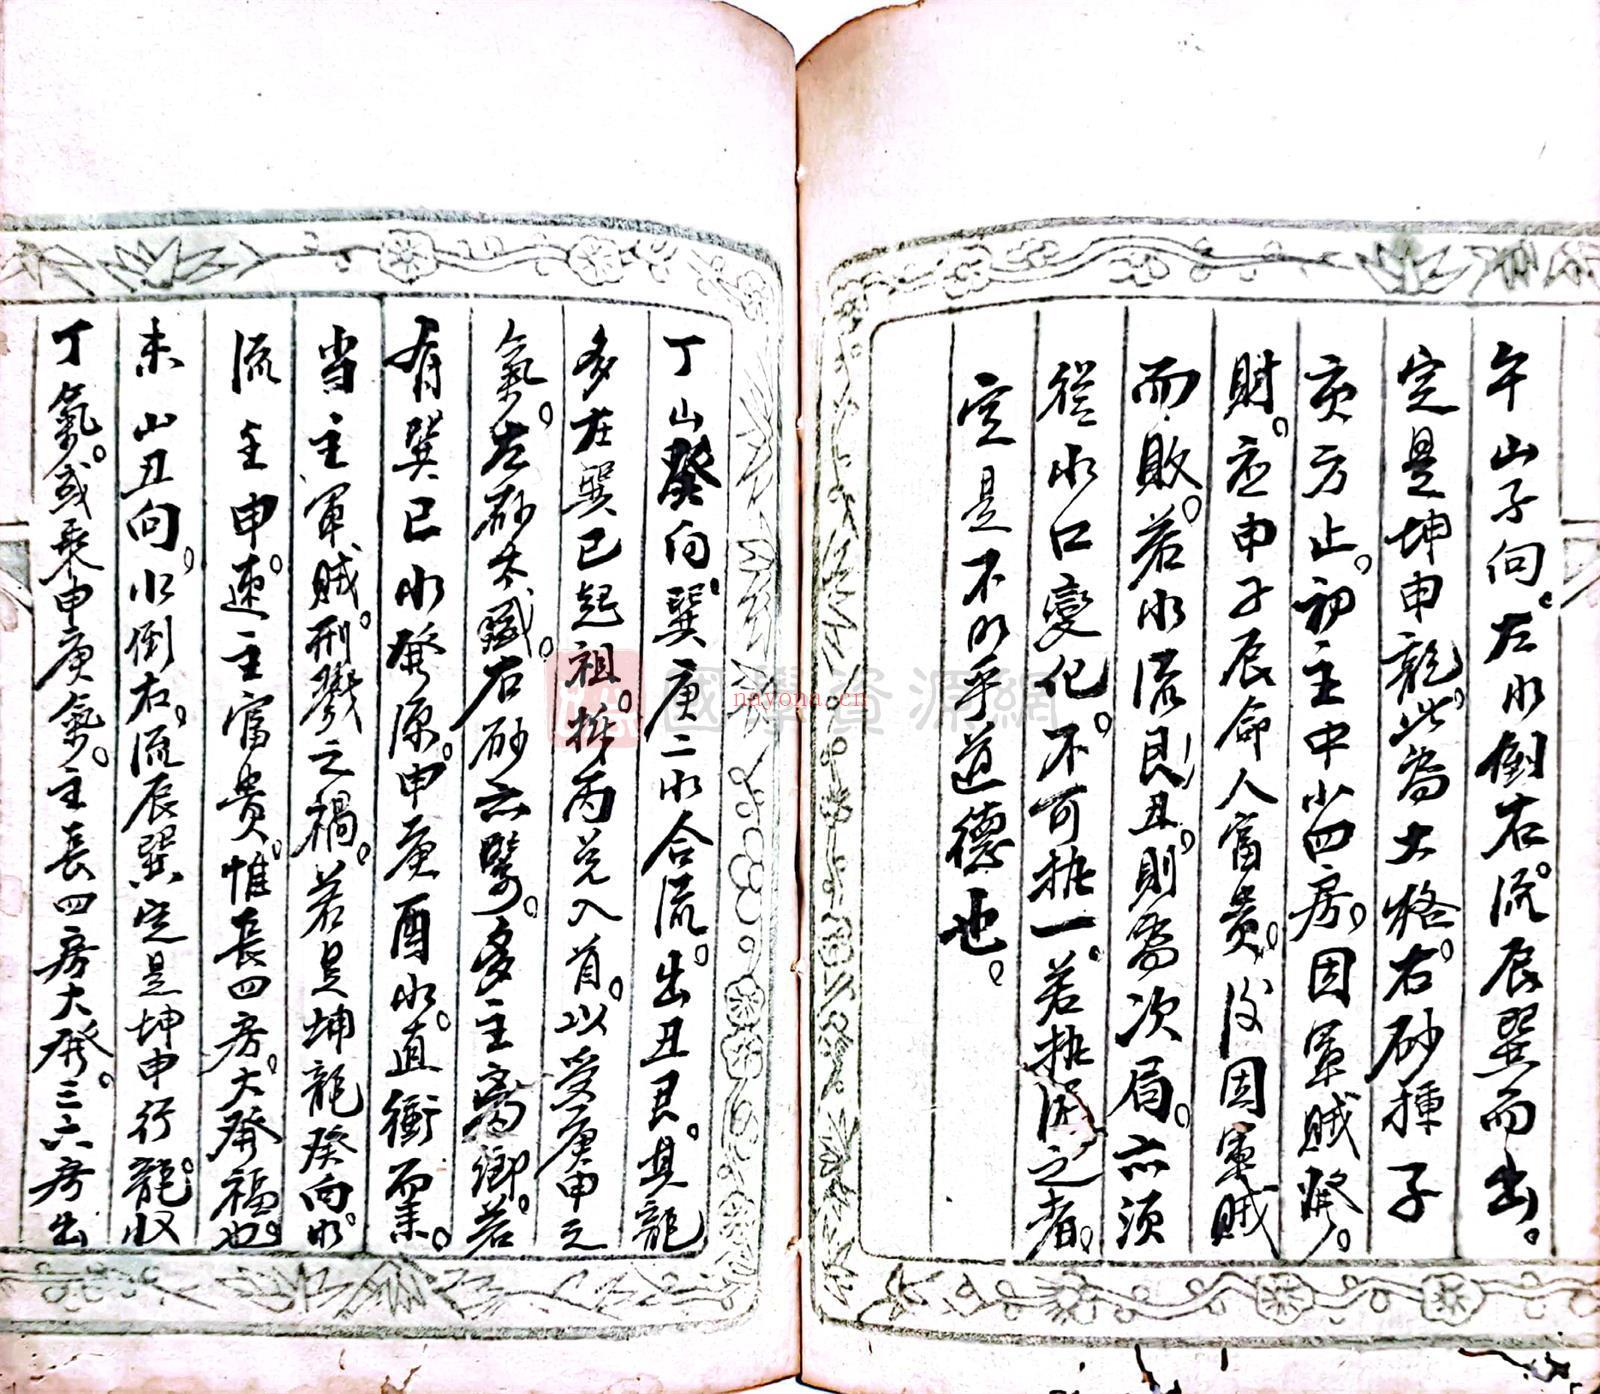 午山子向。左水倒右。流辰巽而出。
定是坤申龍。此為大格。右砂種子
亥方止。初主中小四房。因軍賊發。
財。应申子辰命人富貴。後因軍賊
而敗。若水流艮丑。則為次局。亦須
從水口变化。不可执一。若执固之者。
定是不明乎道德也。
丁山癸向。巽庚二水合流。出丑艮。其龍
多在巽巳起祖。撛丙兑入首。以受庚申之
氣。左砂太藏。右砂亦鬃。多主离鄉。若
有巽巳水發源。申庚酉水。直衝而来。
当主軍賊。刑戮之禍。若是坤龍癸向。水
流主申。速主富貴。惟長四房。大發福也。
未山丑向。水倒右。流辰巽定是坤申行龍。収
丁氣。或乘申庚氣。主長四房大發。三六房出
國學資源網
nayona.cn